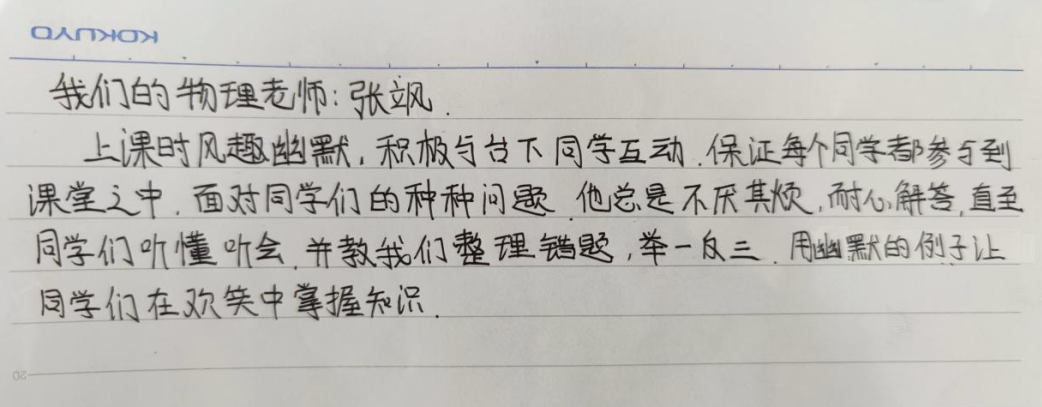 KOKUYO
我们的物理老师:张飒.
上课时风趣幽默,积极与台下同学互动.保证每个同学都参与到
课堂之中.面对同学们的种种问题.他总是不厌其烦,耐心解答,直至
同学们听懂听会.并教我们整理错题,举一反三.用幽默的例子让
同学们在欢笑中掌握知识.
20